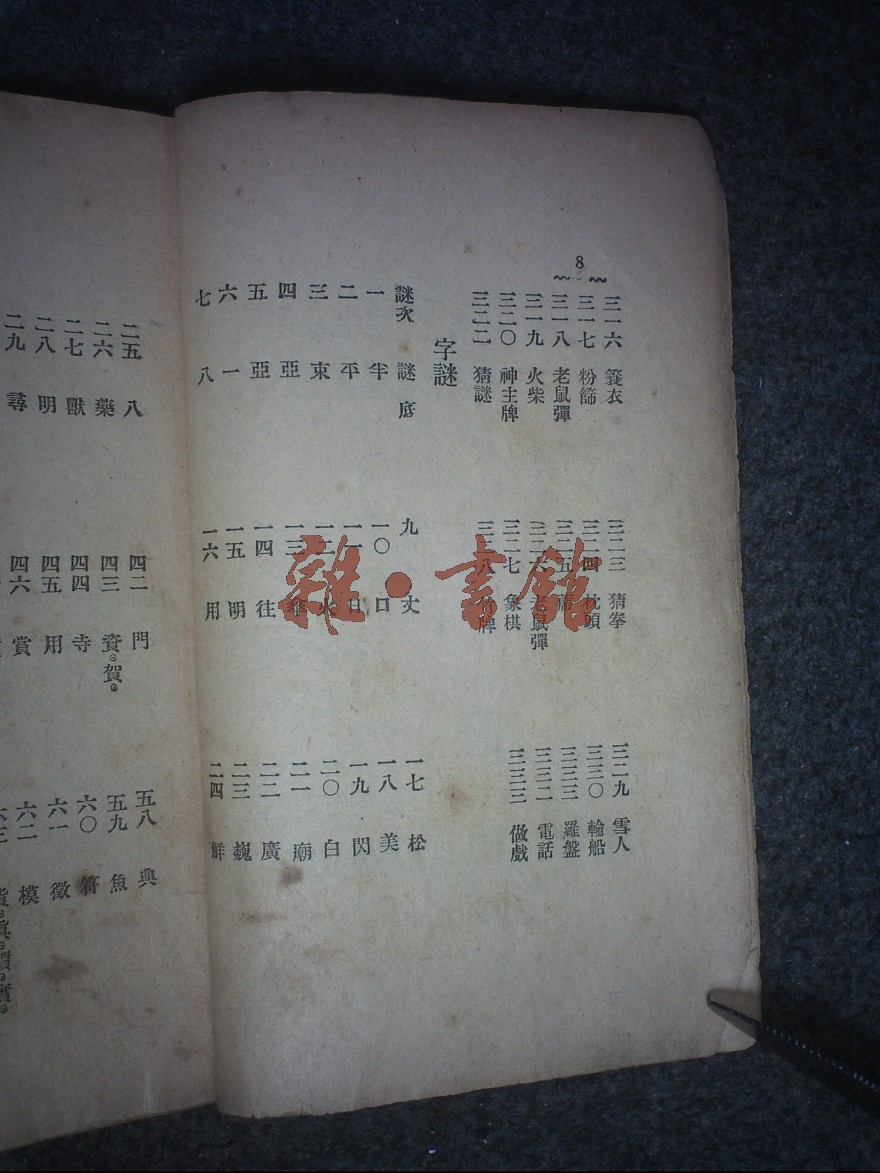 8
三一六 簑衣
三一七 粉篩
三一八 老鼠彈
三一九 火柴
三二〇 神主牌
三二二 猜謎
三二三 猜拳
三二四 枕頭
三二五
三二六 老鼠彈
三二七 象棋
三二八 竹牌
三二九 雪人
三三〇 輪船
三三三 羅盤
三三二 電話
三三三 做戲
字謎
謎次 謎底
一 半
二 平
三 束
四 亞
五 亞
六 一
七 八
九 丈
一〇 口
一一 日
一二 火
一三 傘
一四 往
一五 明
一六 用
一七 松
一八 美
一九 閃
二〇 白
二一 廟
二二 廣
二三 巍
二四 鮮
二五 八
二六 藥
二七 獸
二八 明
二九 尋
四二 門
四三 資。賀。
四四 寺
四五 用
四六 賞
五八 典
五九 魚
六〇 符
六一 徵
六二 模
雜·書館